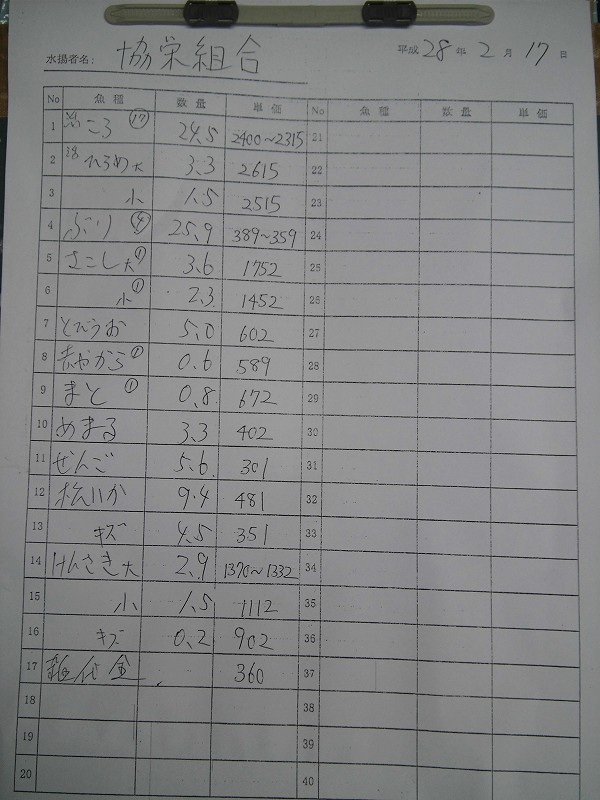 水揚者名: 協栄組合 平成 28 年 2 月 17 日
No 魚種 数量 単価 No 魚種 数量 単価
1 活ころ ⑰ 24.5 2400~2315 21
2 活ひらめ大 3.3 2615 22
3 小 1.5 2515 23
4 ぶり ④ 25.9 389~359 24
5 さこし大 ① 3.6 1752 25
6 小 ① 2.3 1452 26
7 とびうお 5.0 602 27
8 赤やから ① 0.6 589 28
9 まと ① 0.8 672 29
10 めまる 3.3 402 30
11 ぜんご 5.6 301 31
12 松いか 9.4 481 32
13 キズ 4.5 351 33
14 けんさき大 2.9 1370~1332 34
15 小 1.5 1112 35
16 キズ 0.2 902 36
17 箱代金 360 37
18 38
19 39
20 40